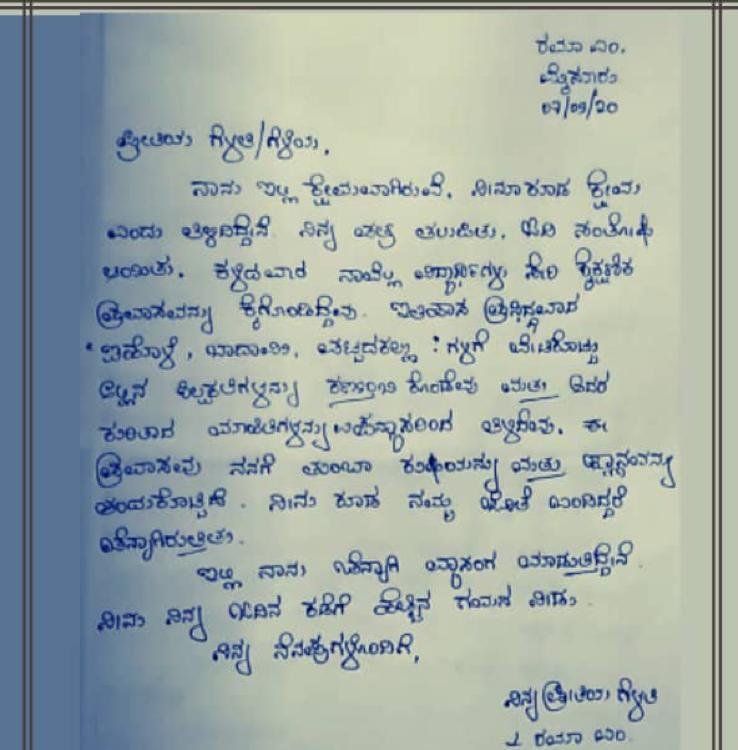 ರಮಾ ಎಂ.
ಮೈಸೂರು
07/09/20
ಪ್ರೀತಿಯ ಗೆಳತಿ/ಗೆಳೆಯ,
ನಾನು ಇಲ್ಲಿ ಕ್ಷೇಮವಾಗಿರುವೆ. ನೀನೂ ಕೂಡ ಕ್ಷೇಮ
ಎಂದು ತಿಳಿದಿದ್ದೇನೆ. ನಿನ್ನ ಪತ್ರ ತಲುಪಿತು. ಓದಿ ಸಂತೋಷ
ಆಯಿತು. ಕಳೆದವಾರ ನಾವೆಲ್ಲ ವಿದ್ಯಾರ್ಥಿಗಳು ಸೇರಿ ಶೈಕ್ಷಣಿಕ
ಪ್ರವಾಸವನ್ನು ಕೈಗೊಂಡಿದ್ದೆವು. ಇತಿಹಾಸ ಪ್ರಸಿದ್ಧವಾದ
ಐಹೊಳೆ, ಬಾದಾಮಿ, ಪಟ್ಟದಕಲ್ಲು : ಗಳಿಗೆ ಭೇಟಿಕೊಟ್ಟು
ಅಲ್ಲಿನ ಶಿಲ್ಪಕಲೆಗಳನ್ನು ಕಣ್ತುಂಬಿ ಕೊಂಡೆವು ಮತ್ತು ಅದರ
ಕುರಿತಾದ ಮಾಹಿತಿಗಳನ್ನು ಉಪನ್ಯಾಸಕರಿಂದ ತಿಳಿದೆವು. ಈ
ಪ್ರವಾಸವು ನನಗೆ ತುಂಬಾ ಖುಷಿಯನ್ನು ಮತ್ತು ಜ್ಞಾನವನ್ನು
ತಂದುಕೊಟ್ಟಿದೆ. ನೀನು ಕೂಡ ನಮ್ಮ ಜೊತೆ ಬಂದಿದ್ದರೆ
ಚೆನ್ನಾಗಿರುತ್ತಿತ್ತು.
ಇಲ್ಲಿ ನಾನು ಚೆನ್ನಾಗಿ ವ್ಯಾಸಂಗ ಮಾಡುತ್ತಿದ್ದೇನೆ.
ನೀನು ನಿನ್ನ ಓದಿನ ಕಡೆಗೆ ಹೆಚ್ಚಿನ ಗಮನ ನೀಡು.
ನಿನ್ನ ನೆನಪುಗಳೊಂದಿಗೆ,
ನಿನ್ನ ಪ್ರೀತಿಯ ಗೆಳತಿ
ರಮಾ ಎಂ.